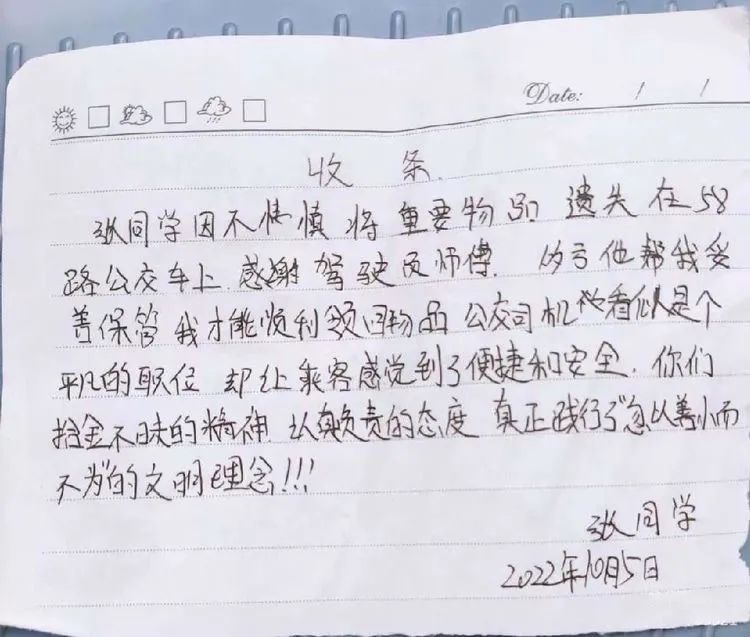 Date: / /
收 条.
张同学因不慎慎 将 重要物品 遗失 在58
路公交车上. 感谢 驾驶员师傅. 多亏他帮我妥
善保管 我才能顺利领回物品 公交司机 看似是个
平凡的职位 却让乘客感觉到了便捷和安全. 你们
拾金不昧的精神 认真负责的态度 真正践行了“勿以善小而
不为”的文明理念!!!
张同学
2022年10月5日